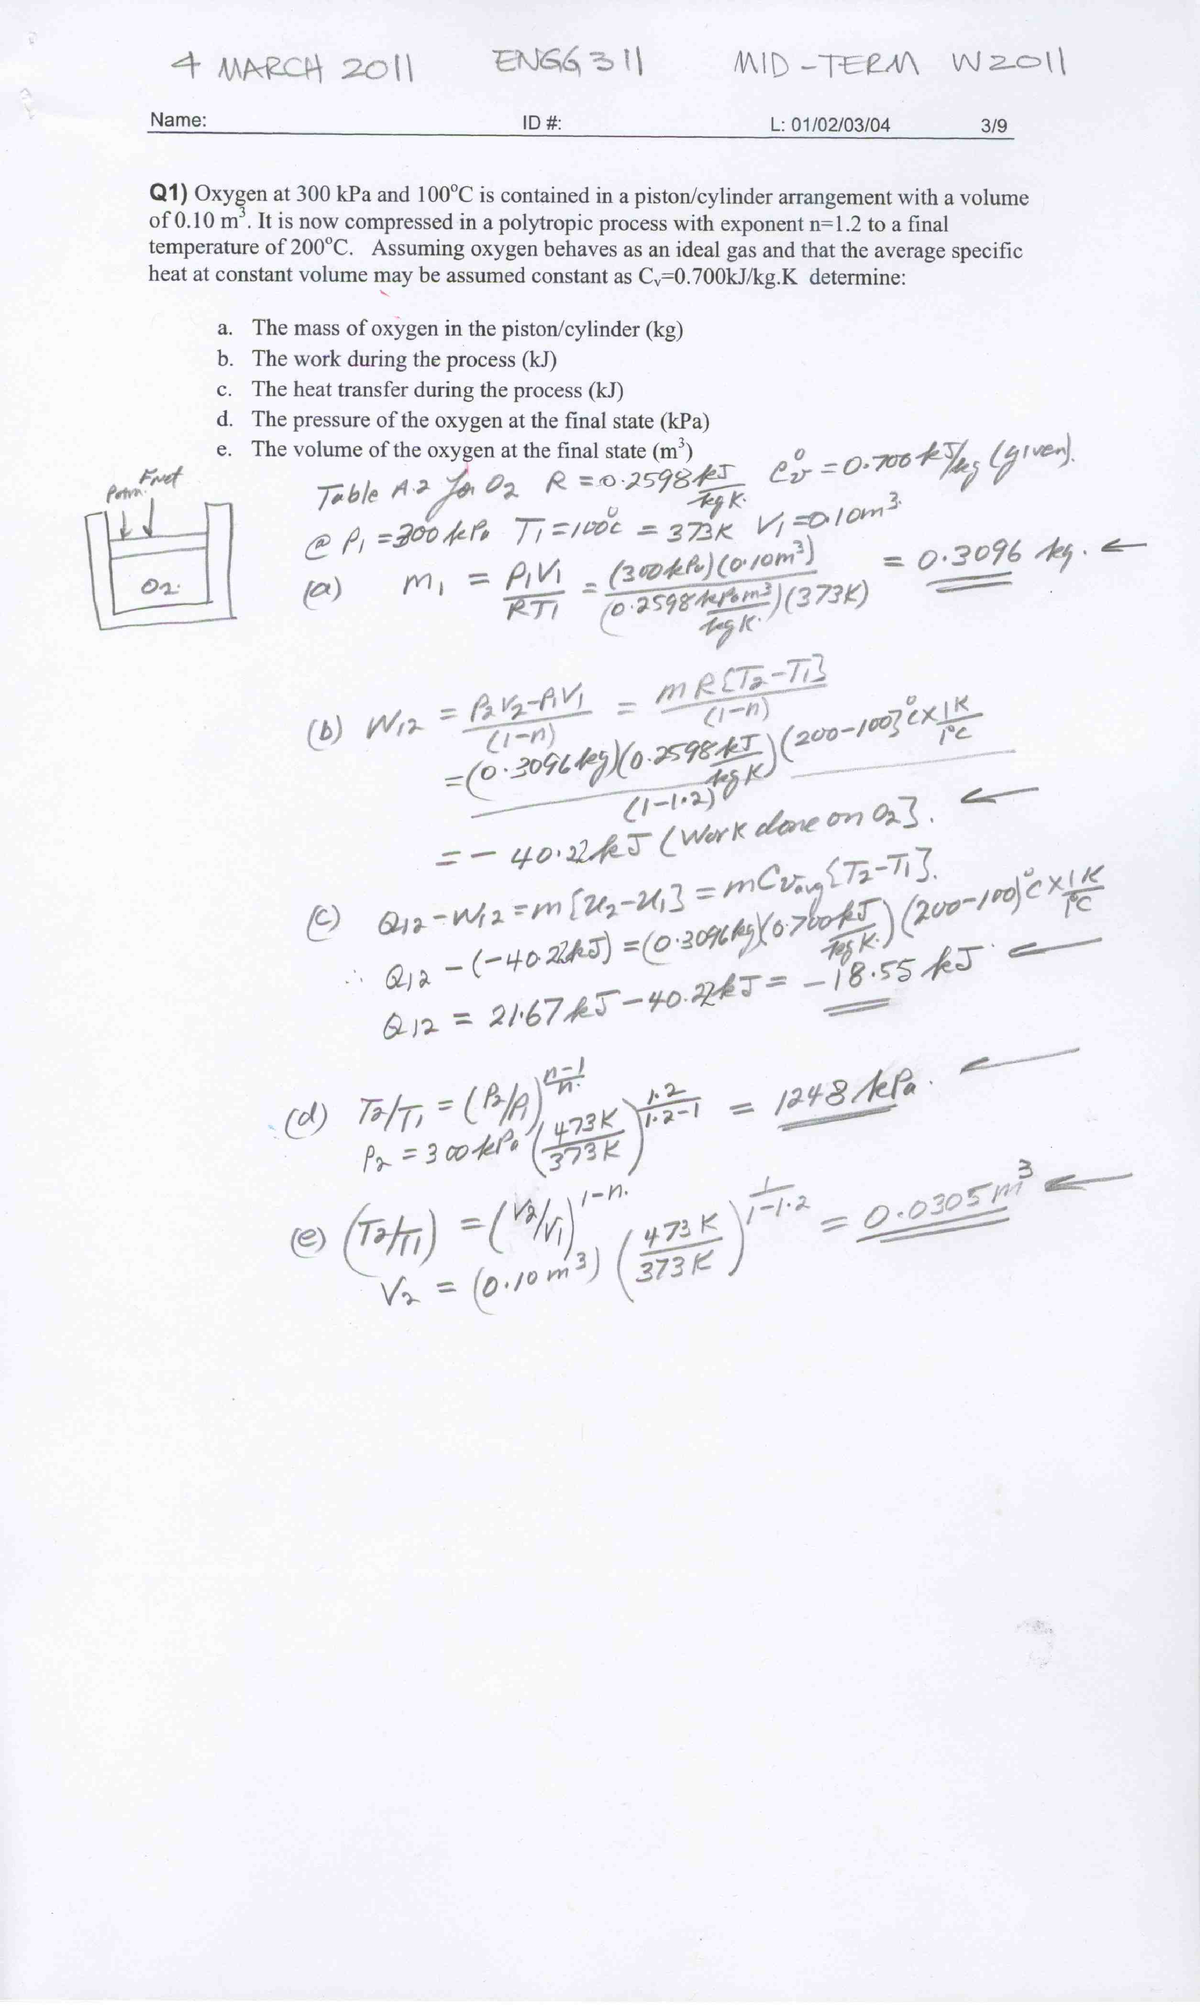 4 MARCH 2011 ENGG 311 MID-TERM W2011
Name: ID #: L: 01/02/03/04 3/9
Q1) Oxygen at 300 kPa and 100°C is contained in a piston/cylinder arrangement with a volume
of 0.10 m³. It is now compressed in a polytropic process with exponent n=1.2 to a final
temperature of 200°C. Assuming oxygen behaves as an ideal gas and that the average specific
heat at constant volume may be assumed constant as Cᵥ=0.700kJ/kg.K determine:
a. The mass of oxygen in the piston/cylinder (kg)
b. The work during the process (kJ)
c. The heat transfer during the process (kJ)
d. The pressure of the oxygen at the final state (kPa)
e. The volume of the oxygen at the final state (m³)
Patm. Fnet
O2.
Table A.2 for O2 R = 0.2598 kJ/kg K. Cv° = 0.700 kJ/kg (given).
@ P1 = 300 kPa T1 = 100°C = 373K V1 = 0.10m³.
(a) m1 = P1V1/RT1 = (300 kPa)(0.10m³)/(0.2598 kPa m³/kg K.)(373K) = 0.3096 kg. ←
(b) W12 = P2V2-P1V1/(1-n) = mR{T2-T1}/(1-n)
=(0.3096 kg)(0.2598 kJ/kg K)(200-100}°C x 1K/1°C
(1-1.2)
= - 40.22 kJ (Work done on O2}. ←
(c) Q12-W12 = m{u2-u1} = mCvavg{T2-T1}.
∴ Q12 - (-40.22kJ) = (0.3096kg)(0.700kJ/kg K.)(200-100)°C x 1K/1°C
Q12 = 21.67 kJ - 40.22 kJ = -18.55 kJ ←
(d) T2/T1 = (P2/P1)^(n-1/n.)
P2 = 300 kPa (473K/373K)^(1.2/1.2-1) = 1248 kPa. ←
(e) (T2/T1) = (V2/V1)^(1-n.)
V2 = (0.10 m³) (473 K/373 K)^(1/1-1.2) = 0.0305 m³ ←